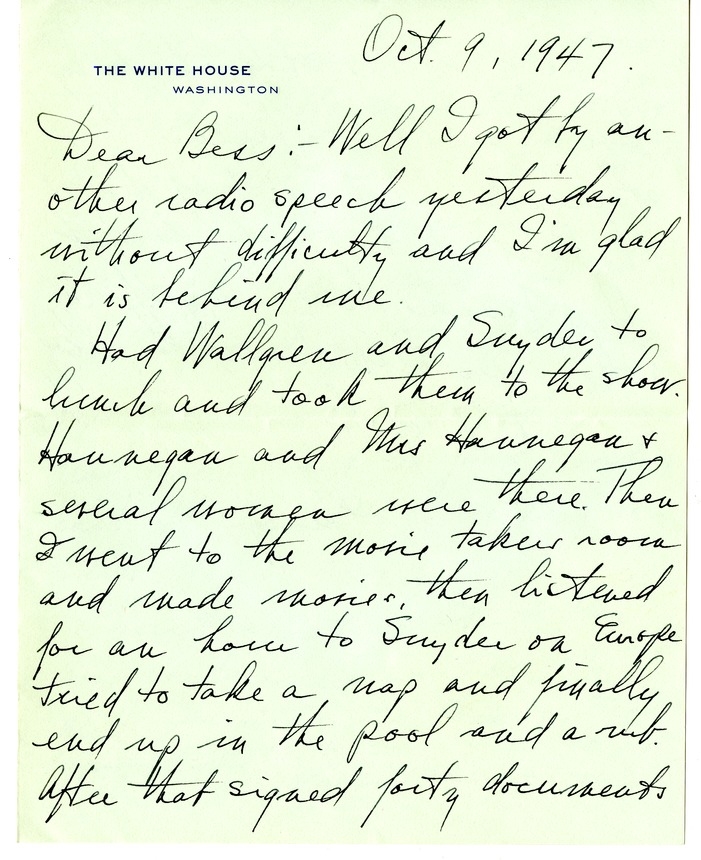 Oct. 9, 1947.
THE WHITE HOUSE
WASHINGTON
Dear Bess:- Well I got by an-
other radio speech yesterday
without difficulty and I'm glad
it is behind me.
Had Wallgren and Snyder to
lunch and took them to the show.
Hannegan and Mrs Hannegan +
several women were there. Then
I went to the movie takers room
and made movies, then listened
for an hour to Snyder on Europe
tried to take a nap and finally
end up in the pool and a rub.
After that signed forty documents